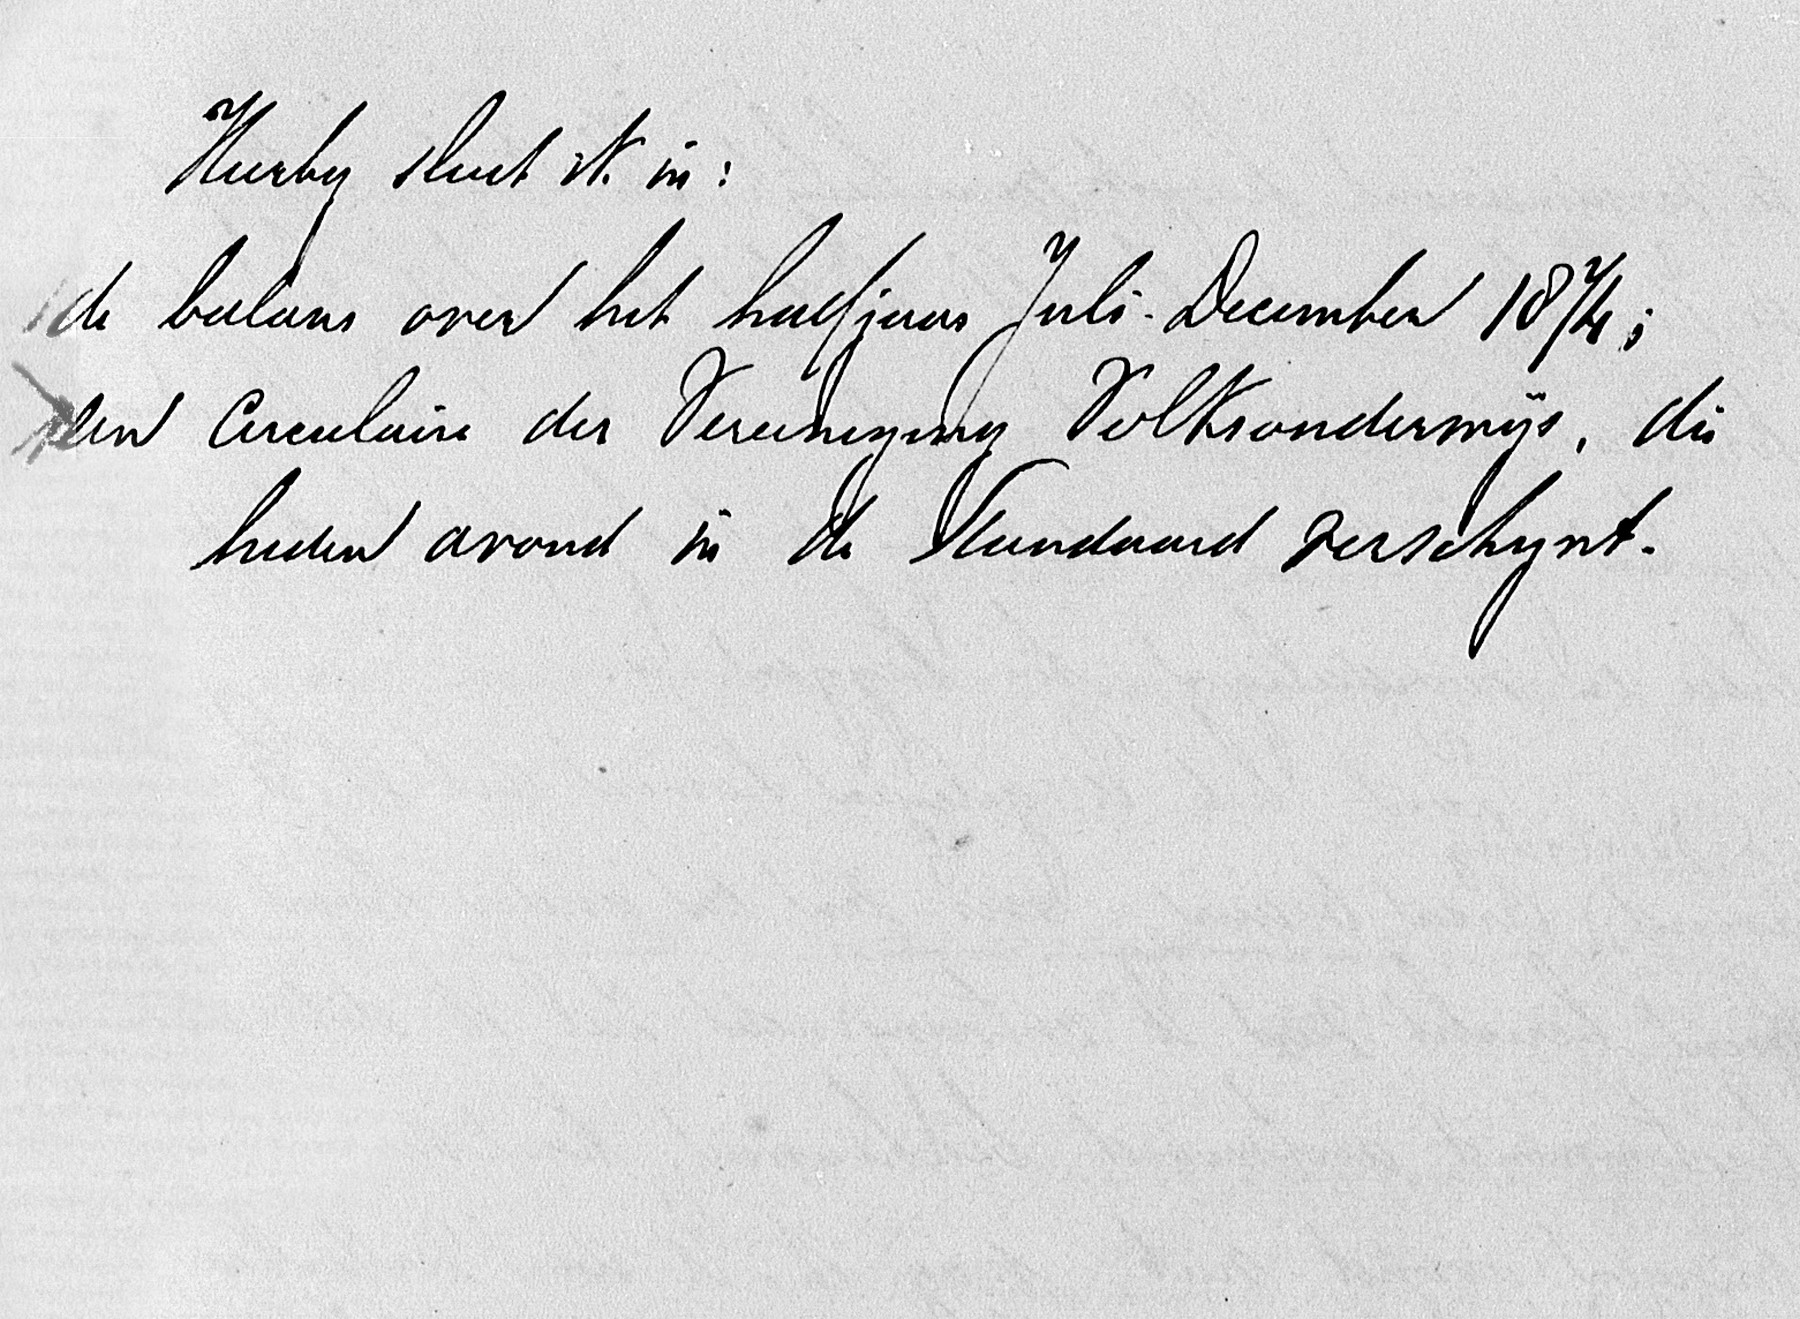 Hierby sluit ik in:
de balans over het halfjaar Juli-December 1874;
een Circulaire der Vereeniging Volksonderwijs, die
heden avond in de Standaard verschynt.